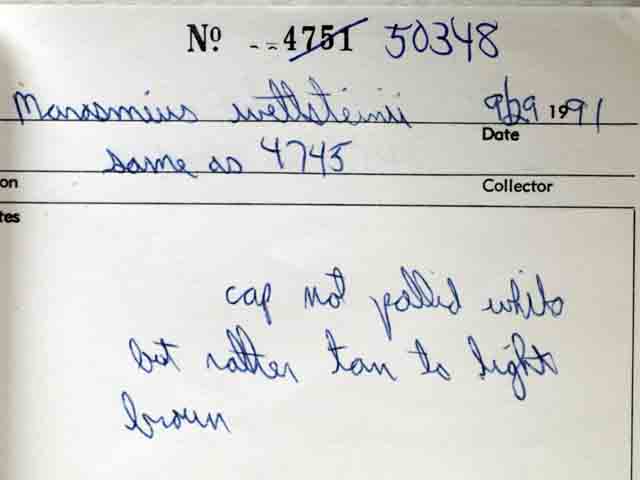 Nº --4751 50348
Marasmius wettsteinii 9/29 1991
Date
same as 4745
on Collector
tes
cap not pallid white
but rather tan to light
brown